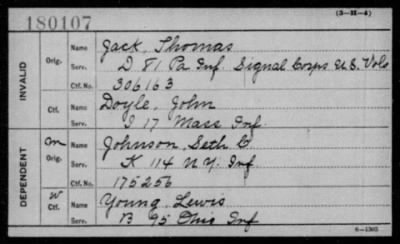 180107
(3-H-4)
INVALID
Orig. Name Jack, Thomas
Serv. D 81 Pa Inf Signal Corps U.S. Vols
Ctf. No. 306163
Ctf. Name Doyle, John
Serv. I 17 Mass Inf
DEPENDENT
m Orig. Name Johnson, Seth
Serv. K 114 N.Y. Inf
Ctf. No. 175256
W Ctf. Name Young, Lewis
Serv. B 95 Ohio Inf
6-1303